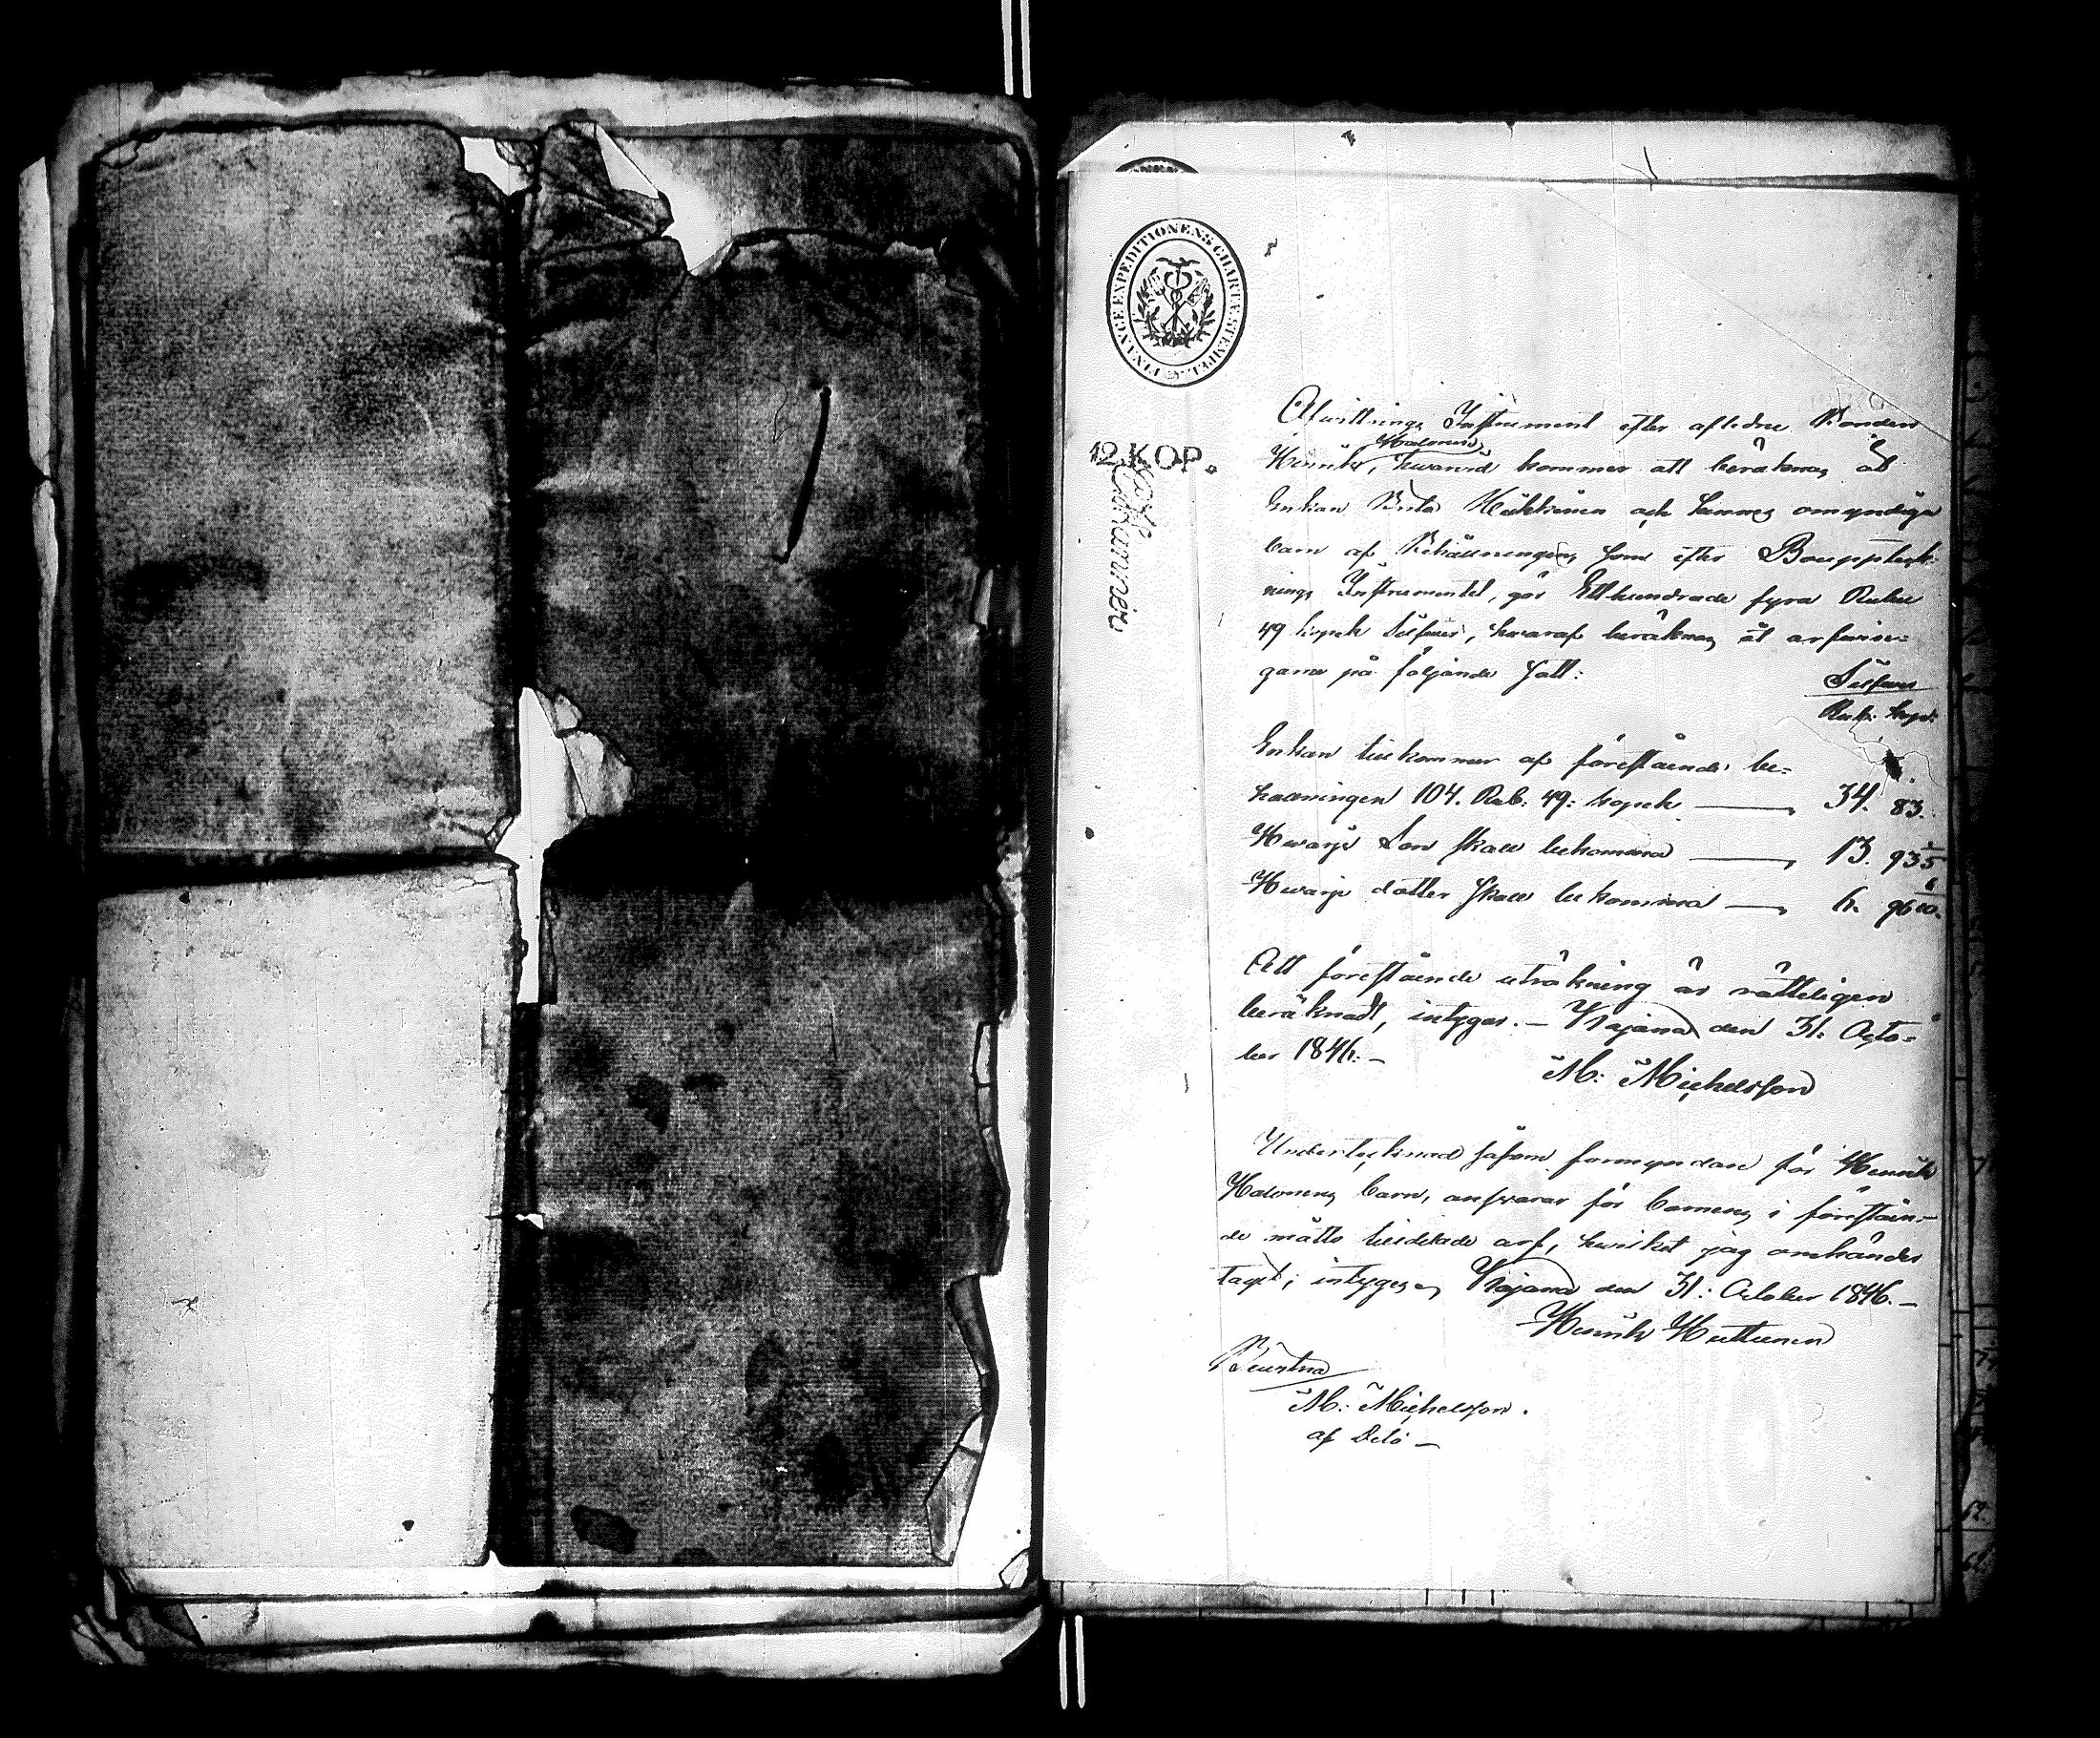 FINSKA VGE EXPEDITIONENS CHARTÆ STEMPEL
12 KOP.
Afvittrings Instrument efter aflidne Bonden
Halonens
Henrik, hvarvid kommer att beräknas åt
Enkan Brita Heikkinen och hennes omyndiga
barn af Behållningen, som efter Bouppteck-
nings Instrumentet, gör Ett hundrade fyra Rubel
49 kopek Silfver, hvaraf beräknas åt arfvin-
garne på följande sätt:
Silfver
Rub. kop.
Enkan tillkommer af förestående be-
hållningen 104. Rub. 49: kopek 34. 83.
Hvarje Son skall bekomma 13. 93
Hvarje dotter skall bekomma 6. 96
Att förestående uträkning är rätteligen
beräknadt, intygar. - Kajana den 31. Octo-
ber 1846. -
M: Michelsson
Undertecknad såsom förmyndare för Henrik
Halonens barn, ansvarar för barnens i förestån-
de måtto tilldelade arf, hvilket jag omhänder
tagit; intygas, Kajana den 31: October 1846. -
Henrik Huttunen
Bevittna
M: Michelsson.
af Delö -